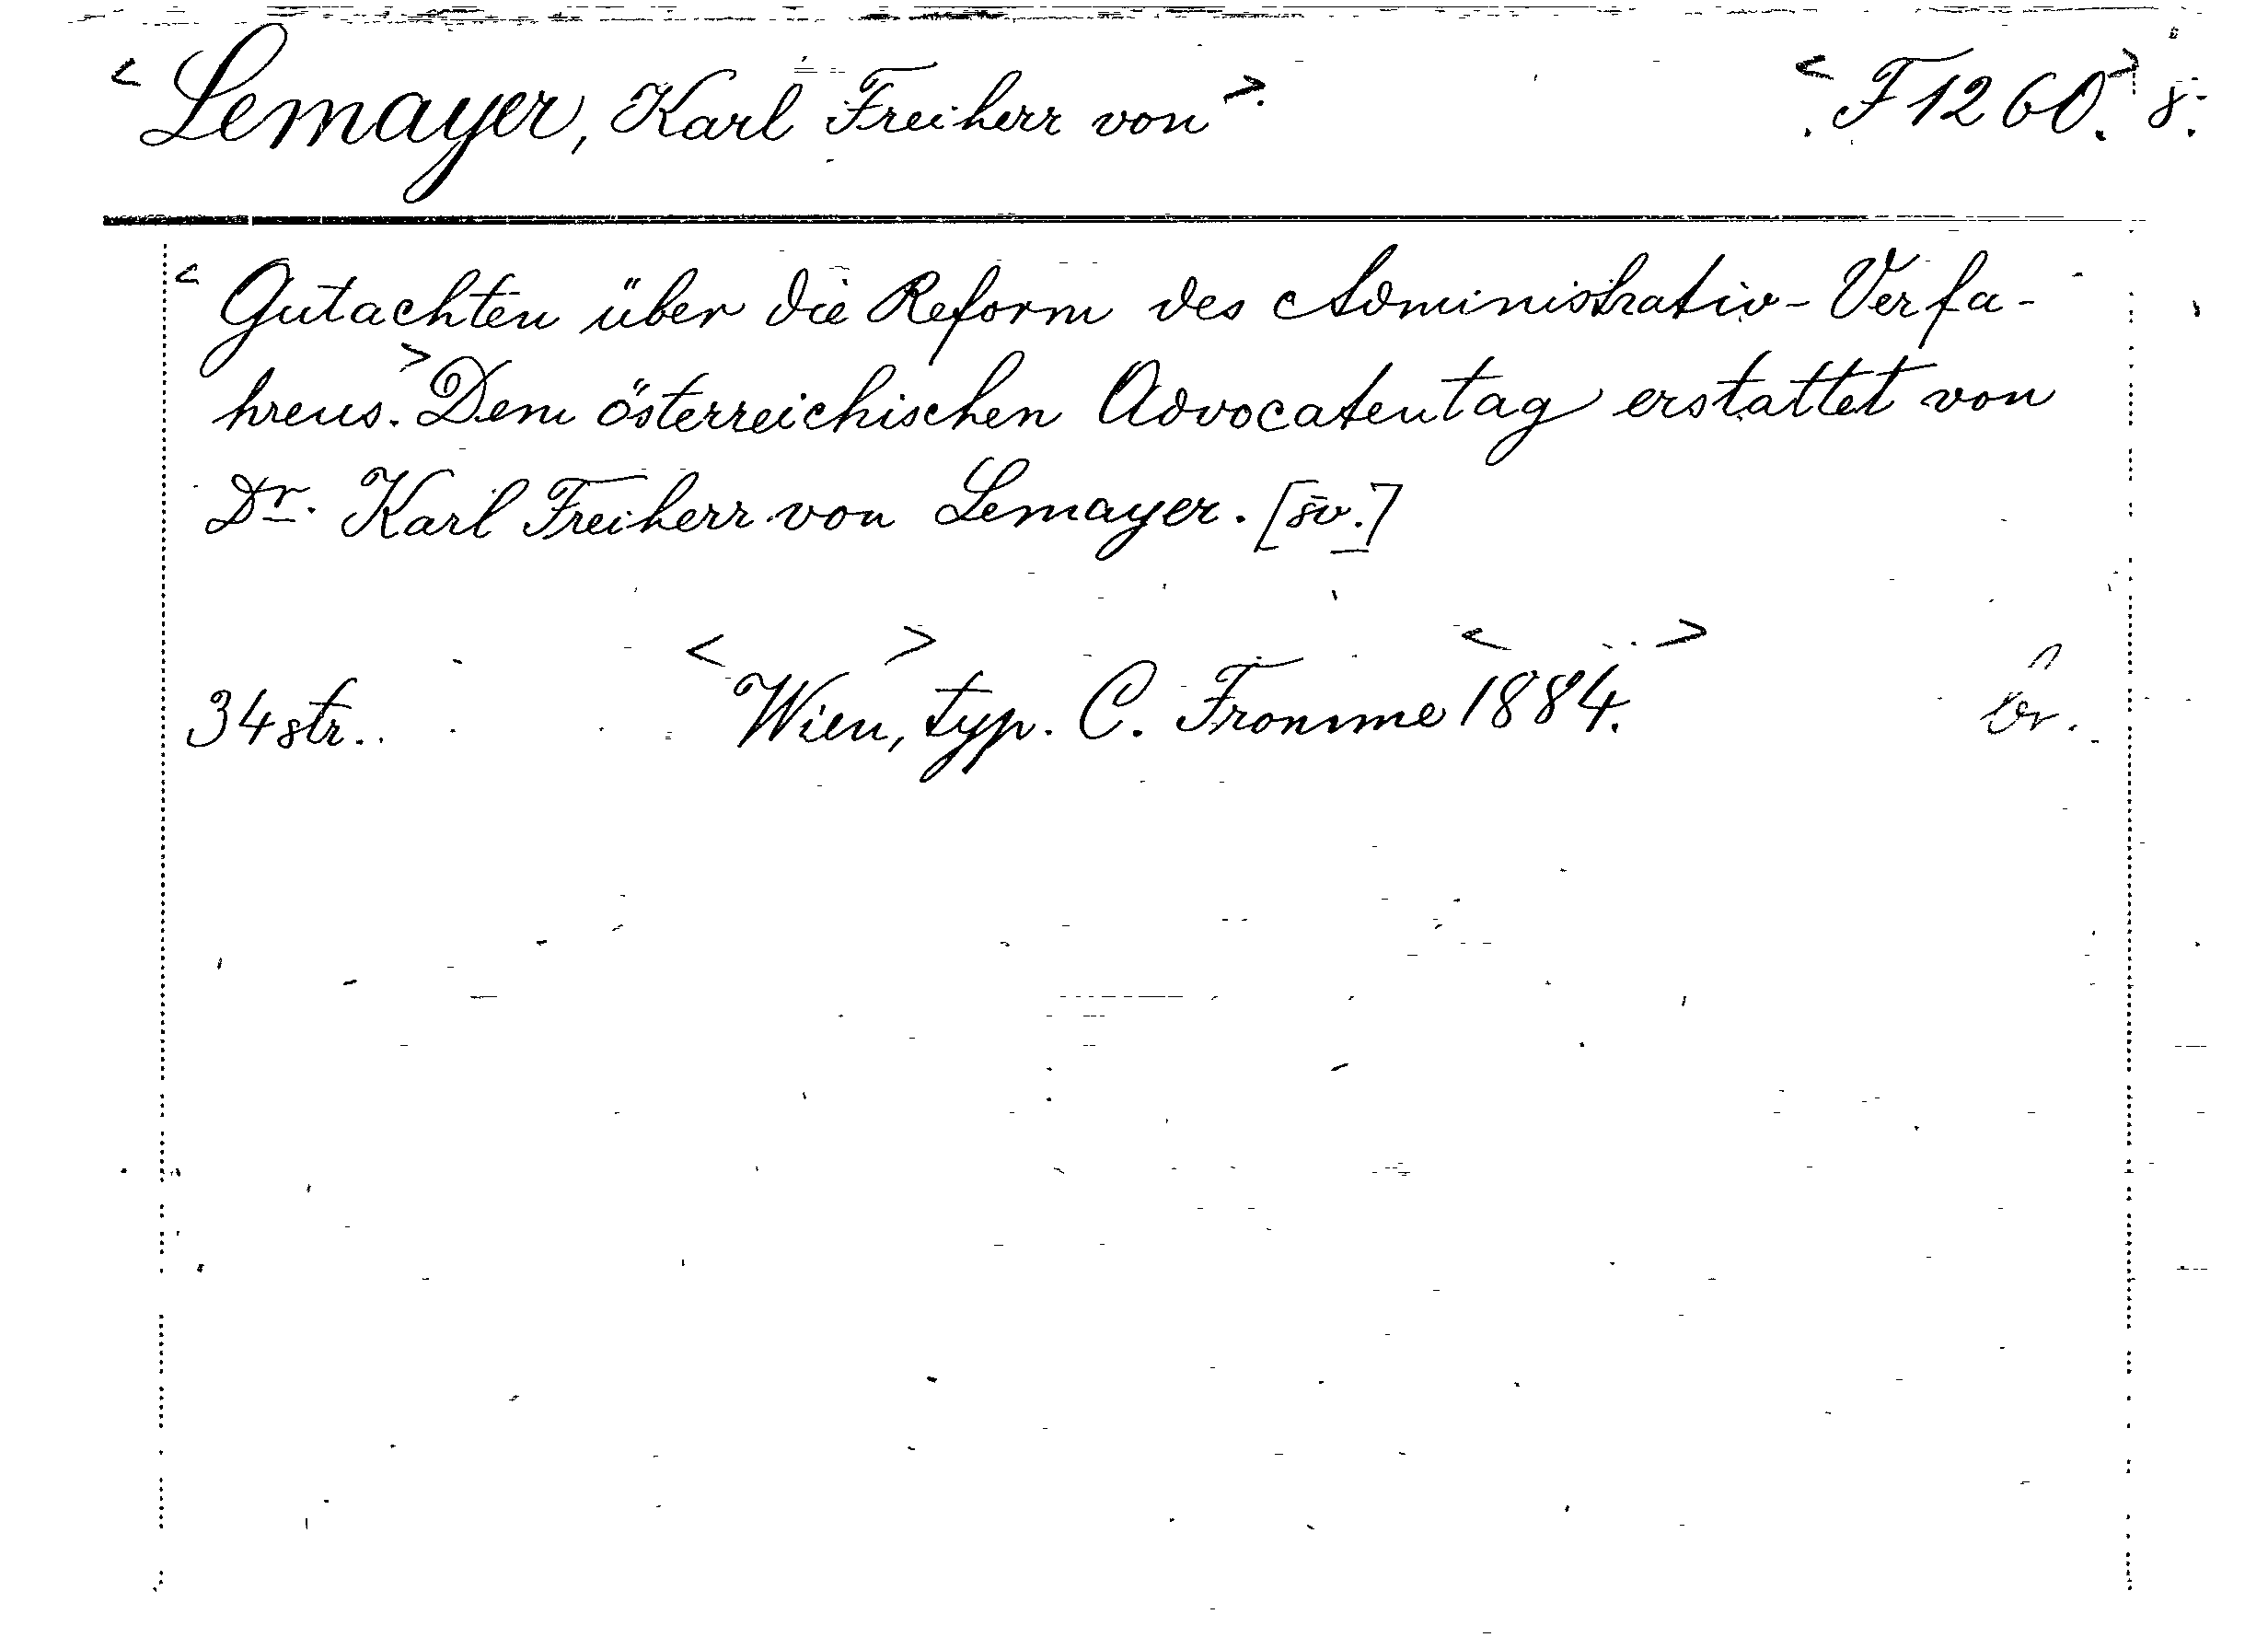 <Lemayer, Karl Freiherr von>. <F 1260.> 8.
<Gutachten über die Reform des Administrativ-Verfa-
hrens.> Dem österreichischen Advocatentag erstattet von
Dr. Karl Freiherr von Lemayer. [sv.]
34 str. <Wien>, typ. C. Fromme <1884.> br.